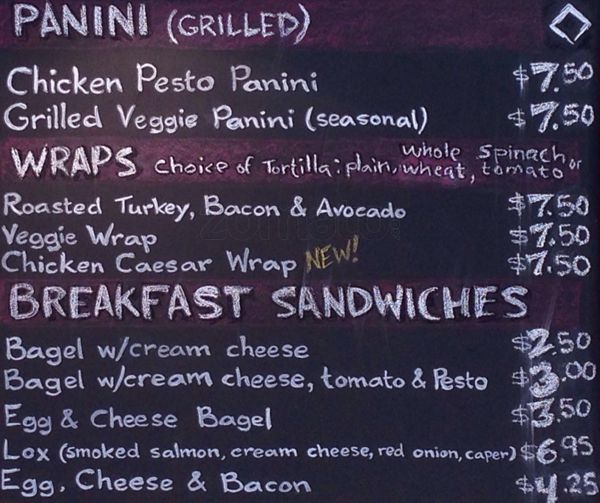 PANINI (GRILLED)
Chicken Pesto Panini $7.50
Grilled Veggie Panini (seasonal) $7.50
WRAPS Choice of Tortilla: plain, whole wheat, Spinach or tomato
Roasted Turkey, Bacon & Avocado $7.50
Veggie Wrap $7.50
Chicken Caesar Wrap NEW! $7.50
BREAKFAST SANDWICHES
Bagel w/cream cheese $2.50
Bagel w/cream cheese, tomato & Pesto $3.00
Egg & Cheese Bagel $3.50
Lox (smoked salmon, cream cheese, red onion, caper) $6.95
Egg, Cheese & Bacon $4.25